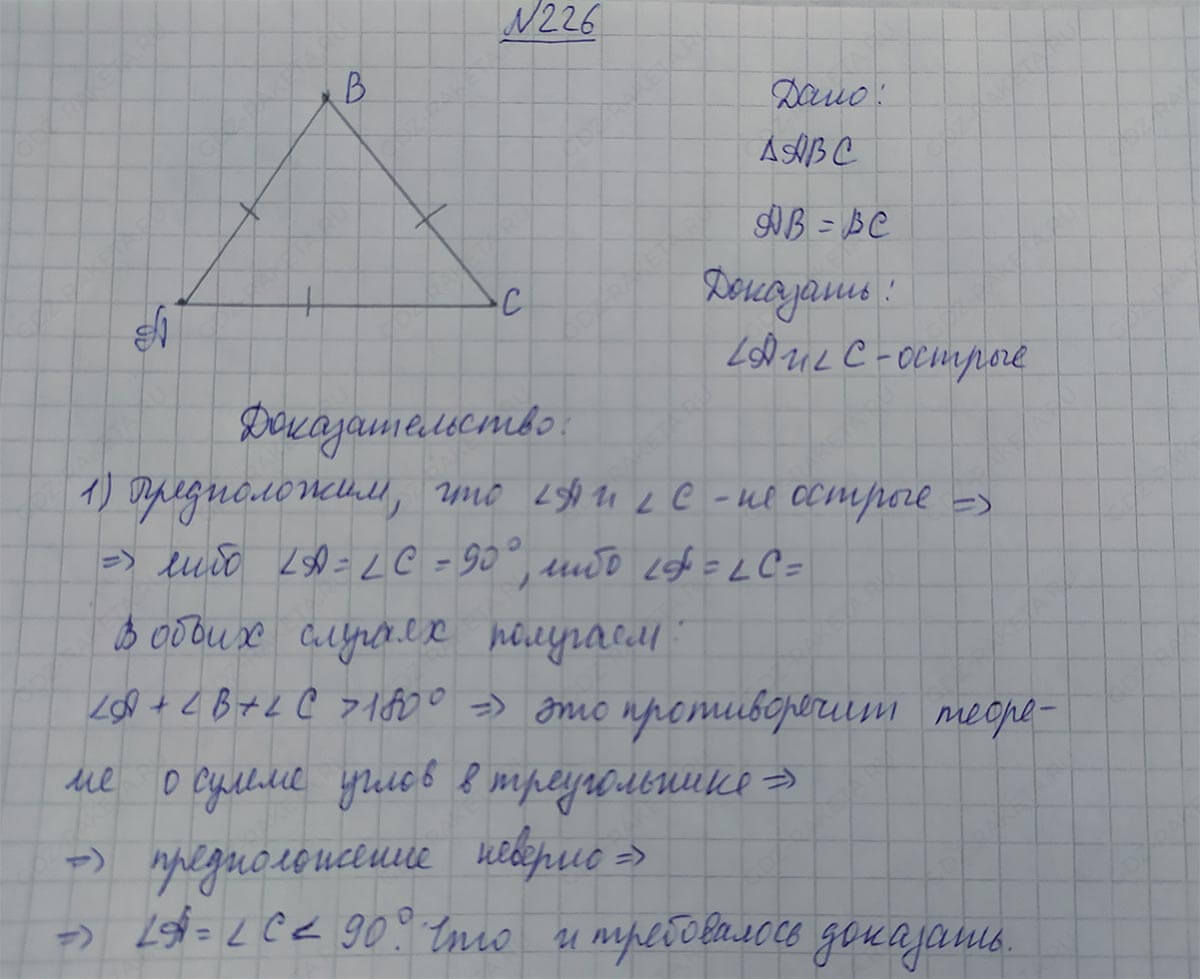 №226
B
A
C
Дано:
ΔABC
AB = BC
Доказать:
∠A и ∠C - острые
Доказательство:
1) Предположим, что ∠A и ∠C - не острые =>
=> либо ∠A = ∠C = 90°, либо ∠A = ∠C =
В обоих случаях получаем:
∠A + ∠B + ∠C > 180° => это противоречит теоре-
ме о сумме углов в треугольнике =>
=> предположение неверно =>
=> ∠A = ∠C < 90°. Что и требовалось доказать.